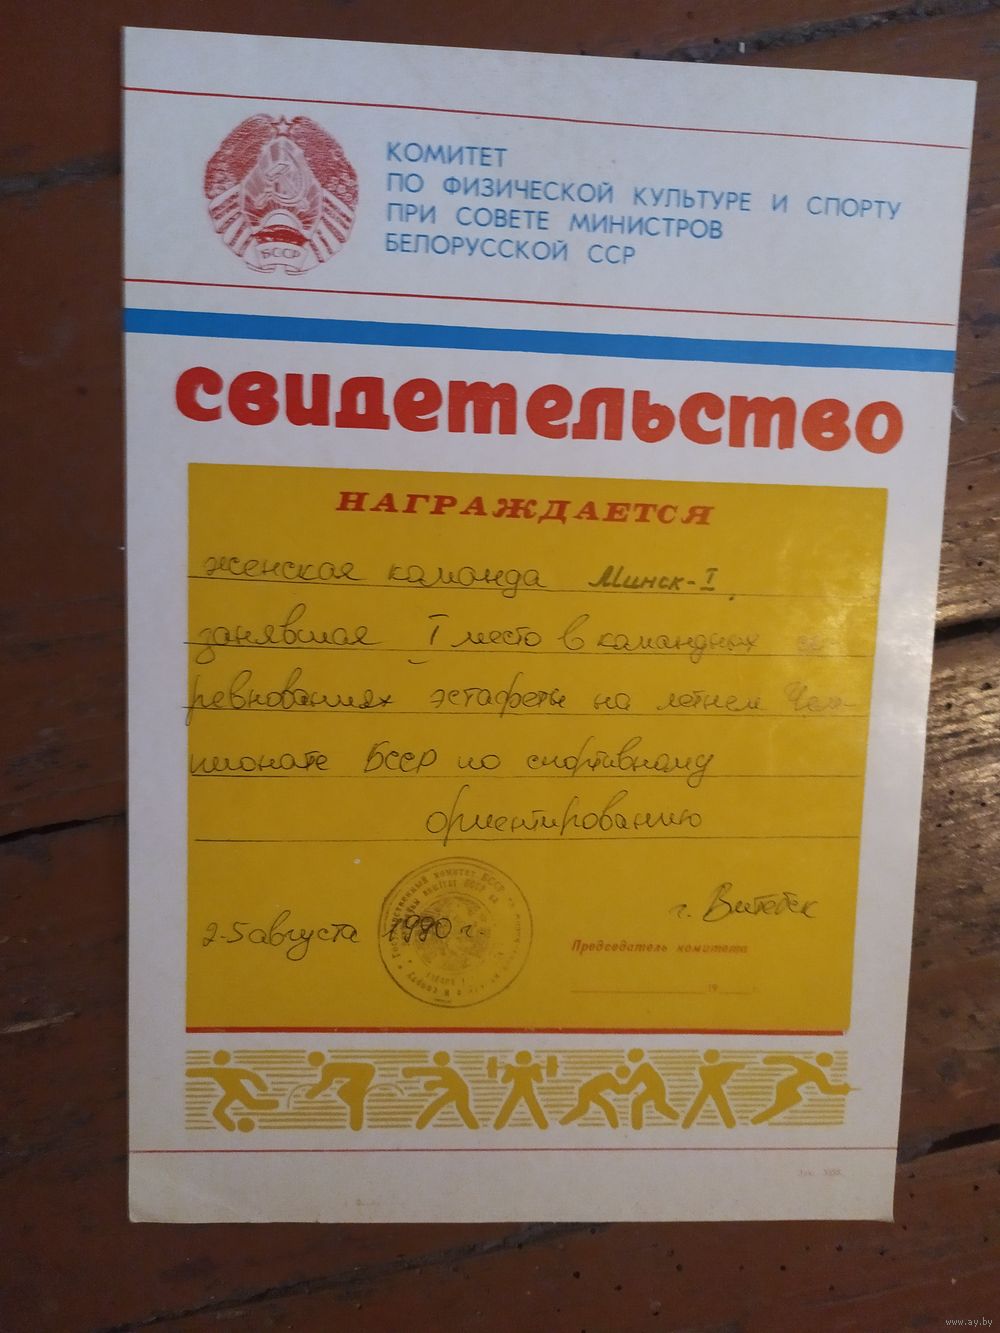 БССР
КОМИТЕТ
ПО ФИЗИЧЕСКОЙ КУЛЬТУРЕ И СПОРТУ
ПРИ СОВЕТЕ МИНИСТРОВ
БЕЛОРУССКОЙ ССР
свидетельство
НАГРАЖДАЕТСЯ
женская команда Минск-I,
занявшая I место в командных со-
ревнованиях эстафеты на летнем Чем-
пионате БССР по спортивному
ориентированию
2-5 августа 1980 г.
г. Витебск
Председатель комитета
19 г.
www.ay.by